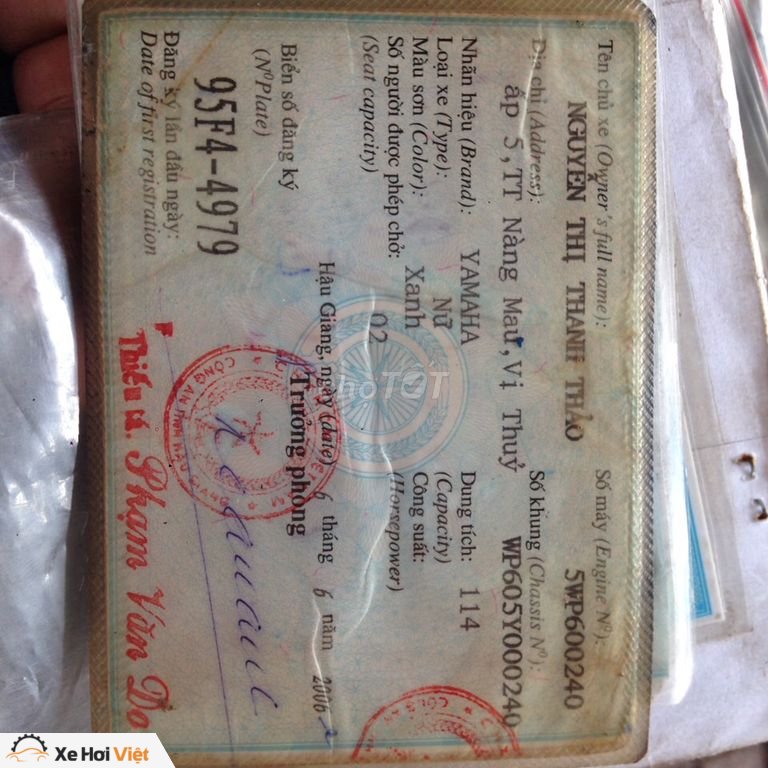 Tên chủ xe (Owner's full name):
NGUYỄN THỊ THANH THẢO
Số máy (Engine Nº):
5WP600240
Địa chỉ (Address):
ấp 5,TT Nàng Mau,Vị Thuỷ
Số khung (Chassis Nº):
WP605Y000240
Nhãn hiệu (Brand): YAMAHA
Dung tích: 114
(Capacity)
Loại xe (Type): Nữ
Công suất:
(Horsepower)
Màu sơn (Color): Xanh
Số người được phép chở: 02
(Seat capacity)
Biển số đăng ký
(NºPlate)
95F4-4979
Hậu Giang, ngày (date) 6 tháng 6 năm 2006
Trưởng phòng
Đăng ký lần đầu ngày:
Date of first registration
CÔNG AN TỈNH HẬU GIANG
Thiếu tá. Phạm Văn Do
Chợ TỐT
Xe Hơi Việt